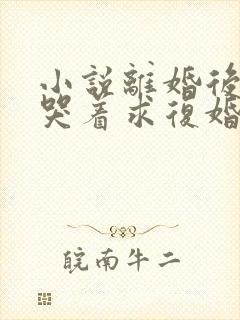 小說離婚後
哭着求復婚
皖南牛二